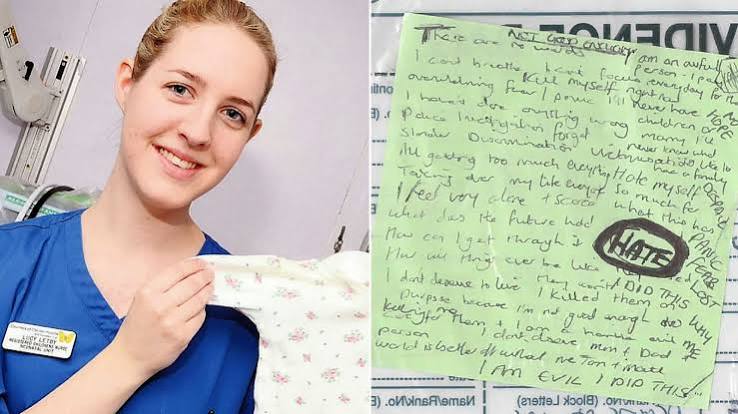 Countess of Chester Hospital
LUCY LETBY
REGISTERED CHILDRENS NURSE
NEONATAL UNIT
EVIDENCE
NOT GOOD ENOUGH
There are no words I am an awful
person - I pay
I can't breathe I can't focus everyday for that
Kill myself right now
overwhelming fear / panic I'll never have
HOPE
children or
I haven't done anything wrong marry I'll
Police investigation forget never know what
Slander Discrimination Victimisation like to
have a family
All getting too much everything Hate myself
DESPAIR
Taking over my life so much for
I feel very alone + scared what this has
PANIC
What does the future hold
FEAR
HATE
How can I get through it
LOST
How will things ever be like
I DID THIS
I don't deserve to live I killed them on
WHY
purpose because I'm not good enough
ME
care for them + I am a horrible evil
person I don't deserve mum + Dad
world is better off without me
I AM EVIL I DID THIS
Name/Rank/No.
(Block Letters)